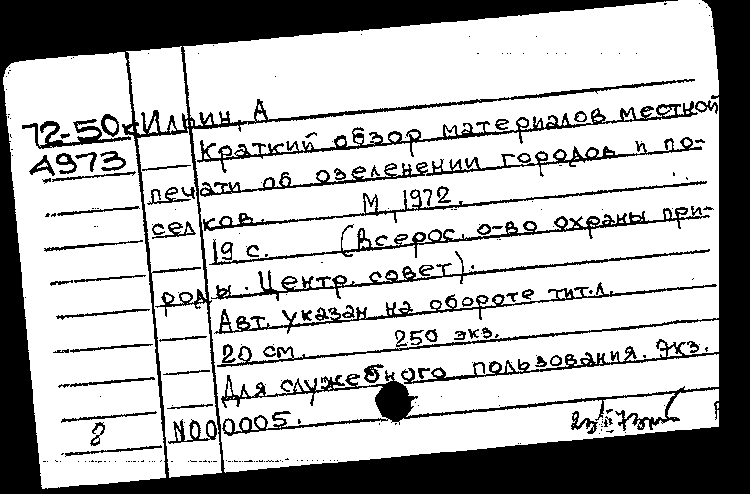 72-50к Ильин, А
4973 Краткий обзор материалов местной
печати об озеленении городов и по-
селков. М, 1972.
19 с. (Всерос. о-во охраны при-
роды. Центр. совет).
Авт. указан на обороте тит.л.
20 см. 250 экз.
Для служебного пользования. Экз.
8 N000005.